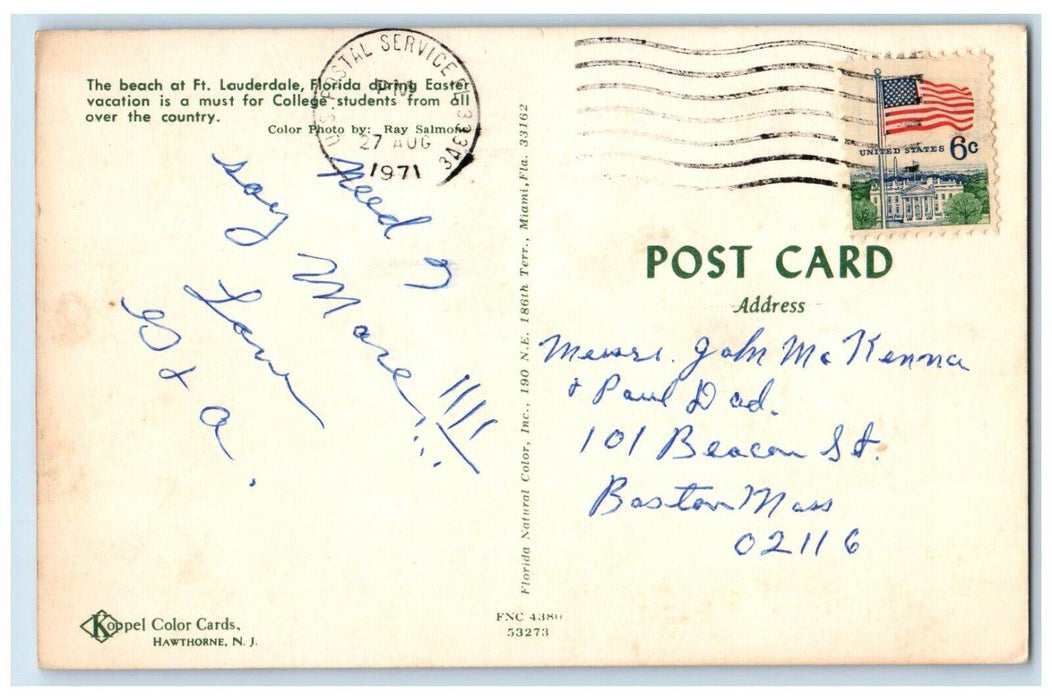 The beach at Ft. Lauderdale, Florida during Easter
vacation is a must for College students from all
over the country.
Color Photo by: Ray Salmon
U.S. POSTAL SERVICE FL 333
PM
27 AUG
1971
UNITED STATES 6c
Need I
say More!!!!
Love
G & a.
POST CARD
Address
Messrs. John McKenna
& Paul Dad.
101 Beacon St.
Boston Mass
02116
Florida Natural Color, Inc., 190 N.E. 186th Terr., Miami, Fla. 33162
Koppel Color Cards,
HAWTHORNE, N. J.
FNC 4380
53273